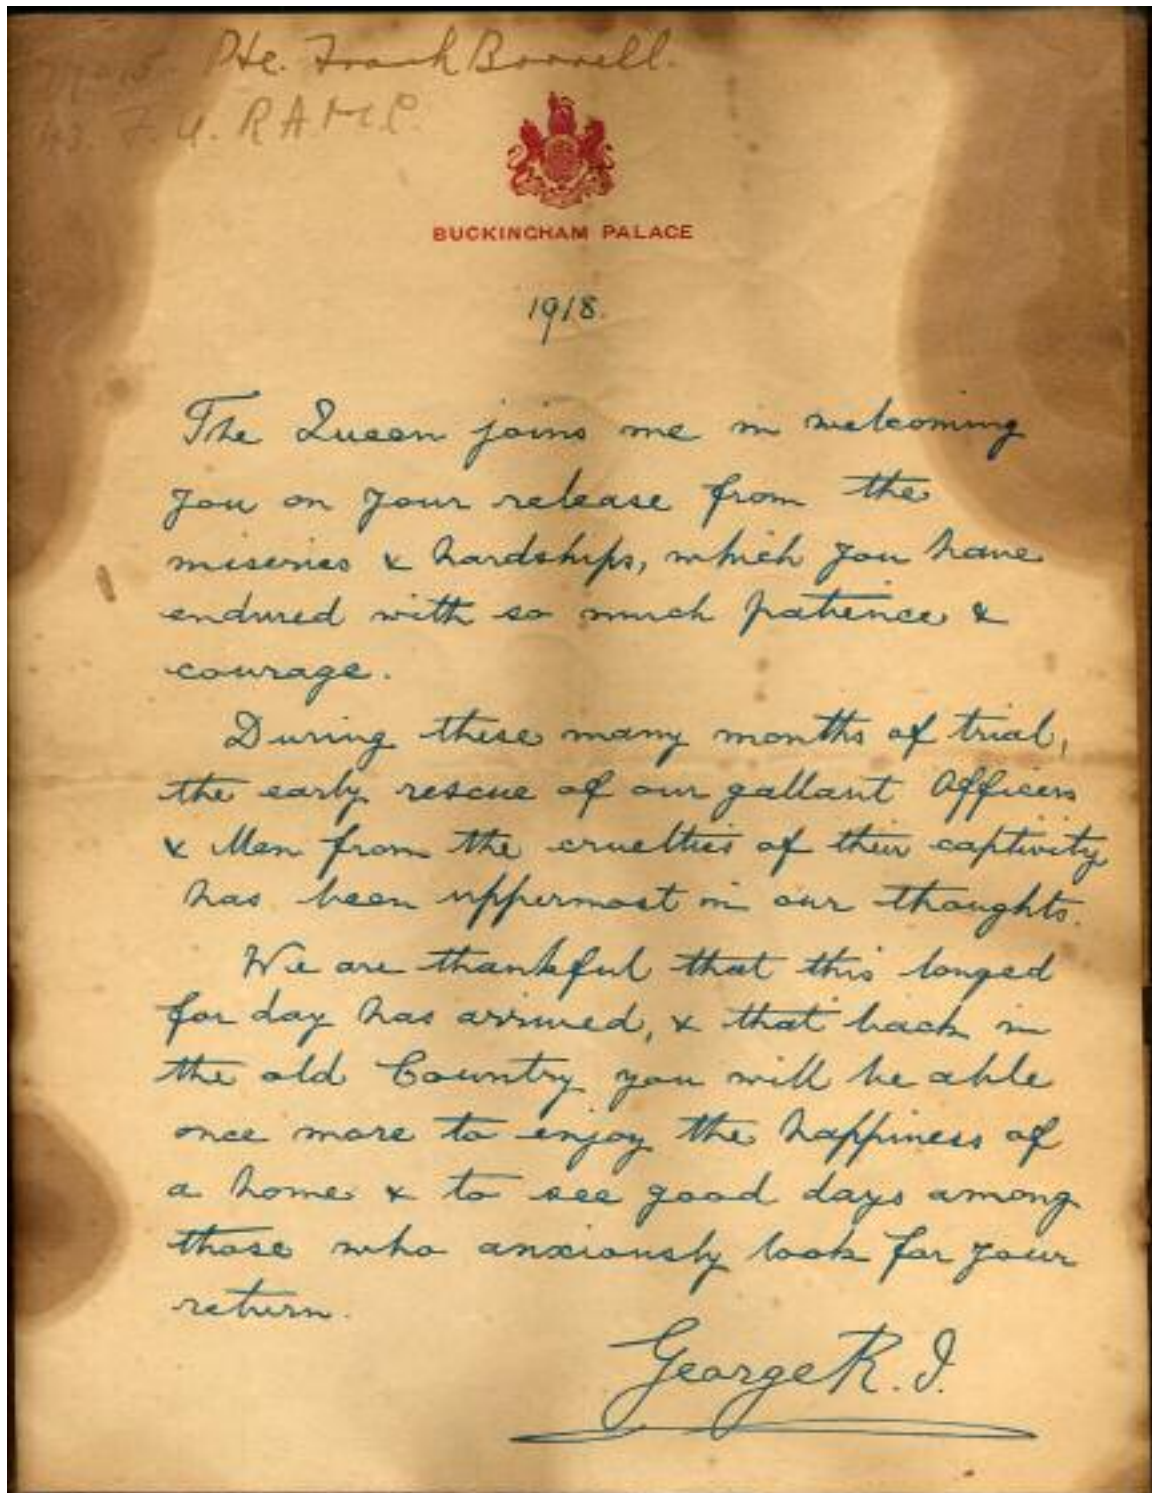 Pte. Frank Borrell.
43. F. A. R A M C.
BUCKINGHAM PALACE
1918.
The Queen joins me in welcoming
you on your release from the
miseries & hardships, which you have
endured with so much patience &
courage.
During these many months of trial,
the early rescue of our gallant Officers
& Men from the cruelties of their captivity
has been uppermost in our thoughts.
We are thankful that this longed
for day has arrived, & that back in
the old Country you will be able
once more to enjoy the happiness of
a home & to see good days among
those who anxiously look for your
return.
George R. I.